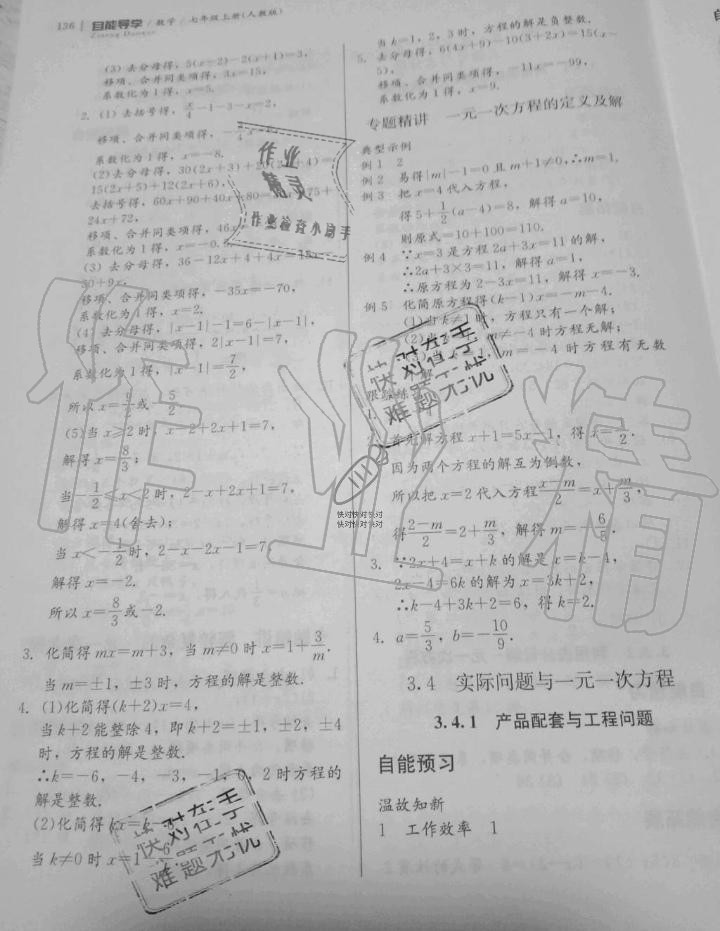 136 自能导学/数学/七年级上册(人教版)
Zineng Daoxue
(3)去分母得，5(x-2)-2(x+1)=3，
移项、合并同类项得，3x=15，
系数化为1得，x=5.
2. (1)去括号得，x/4-1-3-x=2，
移项、合并同类项得，
系数化为1得，x=-8.
(2)去分母得，30(2x+3)+20(
15(2x+5)+12(2x+6)，
去括号得，60x+90+40x+80=
24x+72，
移项、合并同类项得，46x
系数化为1得，x=-0.5
(3)去分母得，36-12x+4+4x=15x-
30+9x，
移项、合并同类项得，-35x=-70，
系数化为1得，x=2.
(4)去分母得，|x-1|-1=6-|x-1|，
移项、合并同类项得，2|x-1|=7，
系数化为1得，|x-1|=7/2，
所以x=9/2或-5/2.
(5)当x≥2时，x-2+2x+1=7，
解得x=8/3；
当-1/2≤x<2时，2-x+2x+1=7，
解得x=4(舍去)；
当x<-1/2时，2-x-2x-1=7
解得x=-2.
所以x=8/3或-2.
3. 化简得mx=m+3，当m≠0时x=1+3/m.
当m=±1，±3时，方程的解是整数.
4. (1)化简得(k+2)x=4，
当k+2能整除4，即k+2=±1，±2，±4
时，方程的解是整数.
∴k=-6，-4，-3，-1，0，2时方程的
解是整数.
(2)化简得kx=k-
当k≠0时x=1-
当k=1，2，3时，方程的解是负整数.
5. 去分母得，6(4x+9)-10(3+2x)=15(x-
5)，
移项、合并同类项得，-11x=-99，
系数化为1得，x=9.
专题精讲 一元一次方程的定义及解
典型示例
例1 2
例2 易得|m|-1=0且m+1≠0，∴m=1.
例3 把x=4代入方程，
得5+1/2(a-4)=8，解得a=10，
则原式=10+100=110.
例4 ∵x=3是方程2a+3x=11的解，
∴2a+3×3=11，解得a=1，
∴原方程为2-3x=11，解得x=-3.
例5 化简原方程得(k-1)x=-m-4.
(1)当k≠1时，方程只有一个解；
(2)当 m≠-4时方程无解；
m=-4时方程有无数
解.
首先解方程x+1=5x-1，得x=1/2.
因为两个方程的解互为倒数，
所以把x=2代入方程x-m/2=x+m/3，
得2-m/2=2+m/3，解得m=-6/5.
3. ∵2x+4=x+k的解是x=k-4，
2x-4=6k的解为x=3k+2，
∴k-4+3k+2=6，得k=2.
4. a=5/3，b=-10/9.
3.4 实际问题与一元一次方程
3.4.1 产品配套与工程问题
自能预习
温故知新
1 工作效率 1
作业
精灵
作业检查小助手
快对快对快对
快对快对快对
作业精灵
快对在手
难题无忧
快对在手
难题无忧